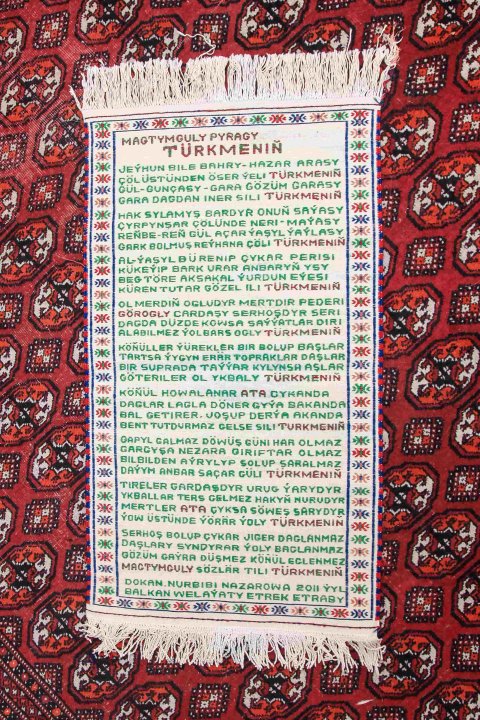 MAGTYMGULY PYRAGY
TÜRKMENIŇ
JEÝHUN BILE BAHRY-HAZAR ARASY
ÇÖLÜSTÜNDEN ÖSER ÝELI TÜRKMENIŇ
GÜL-GUNÇASY-GARA GÖZÜM GARASY
GARA DAGDAN INER SILI TÜRKMENIŇ
HAK SYLAMYŞ BARDYR ONUŇ SAÝASY
ÇYRPYNŞAR ÇÖLÜNDE NERI-MAÝASY
REŇBE-REŇ GÜL AÇAR ÝAŞYL ÝAÝLASY
GARK BOLMUŞ REÝHANA ÇÖLI TÜRKMENIŇ
AL-ÝAŞYL BÜRENIP ÇYKAR PERISI
KÜKEÝIP BARK URAR ANBARYŇ YSY
BEG TÖRE AKSAKAL ÝURDUŇ EÝESI
KÜREN TUTAR GÖZEL ILI TÜRKMENIŇ
OL MERDIŇ OGLUDYR MERTDIR PEDERI
GÖROGLY GARDAŞY SERHOŞDYR SERI
DAGDA DÜZDE KOWSA SAÝÝATLAR DIRI
ALABILMEZ ÝOLBARS OGLY TÜRKMENIŇ
KÖŇÜLLER ÝÜREKLER BIR BOLUP BAŞLAR
TARTSA ÝYGYN ERÄR TOPRAKLAR DAŞLAR
BIR SUPRADA TAÝÝAR KYLYNSA AŞLAR
GÖTERILER OL YKBALY TÜRKMENIŇ
KÖŇÜL HOWALANAR ATA ÇYKANDA
DAGLAR LAGLA DÖNER GYÝA BAKANDA
BAL GETIRER JOŞUP DERÝA AKANDA
BENT TUTDURMAZ GELSE SILI TÜRKMENIŇ
GAPYL GALMAZ DÖWÜŞ GÜNI HAR OLMAZ
GARGYŞA NEZARA GIRIFTAR OLMAZ
BILBILDEN AÝRYLYP SOLUP SARALMAZ
DAÝYM ANBAR SAÇAR GÜLI TÜRKMENIŇ
TIRELER GARDAŞDYR URUG ÝARYDYR
YKBALLAR TERS GELMEZ HAKYŇ NURUDYR
MERTLER ATA ÇYKSA SÖWEŞ SARYDYR
ÝOW ÜSTÜNDE ÝÖRÄR ÝOLY TÜRKMENIŇ
SERHOŞ BOLUP ÇYKAR JIGER DAGLANMAZ
DAŞLARY SYNDYRAR ÝOLY BAGLANMAZ
GÖZÜM GAÝRA DÜŞMEZ KÖŇÜL EGLENMEZ
MAGTYMGULY SÖZLÄR TILI TÜRKMENIŇ
DOKAN. NURBIBI NAZAROWA 2011 ÝYL
BALKAN WELAÝATY ETREK ETRABY